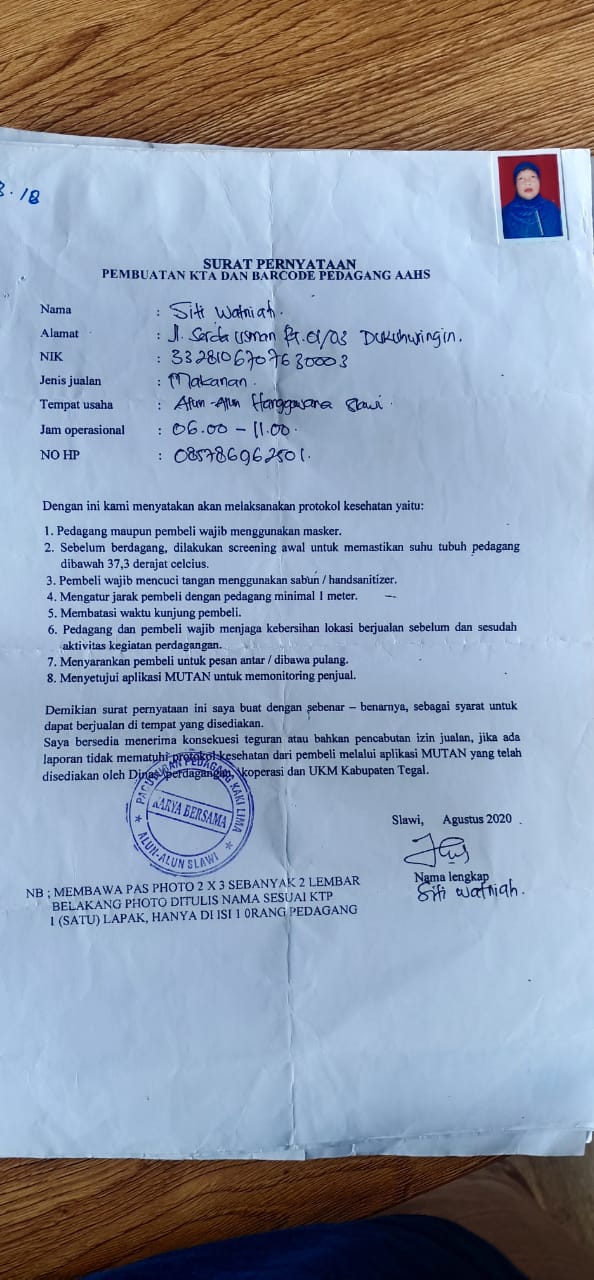 3.18
SURAT PERNYATAAN
PEMBUATAN KTA DAN BARCODE PEDAGANG AAHS
Nama : Siti Watniah.
Alamat : Jl. Serda Usman Rt.01/03 Dukuhwringin.
NIK : 3328106707630003
Jenis jualan : Makanan.
Tempat usaha : Alun-Alun Hanggawana Slawi.
Jam operasional : 06.00 - 11.00.
NO HP : 085786962501.
Dengan ini kami menyatakan akan melaksanakan protokol kesehatan yaitu:
1. Pedagang maupun pembeli wajib menggunakan masker.
2. Sebelum berdagang, dilakukan screening awal untuk memastikan suhu tubuh pedagang
dibawah 37,3 derajat celcius.
3. Pembeli wajib mencuci tangan menggunakan sabun / handsanitizer.
4. Mengatur jarak pembeli dengan pedagang minimal 1 meter.
5. Membatasi waktu kunjung pembeli.
6. Pedagang dan pembeli wajib menjaga kebersihan lokasi berjualan sebelum dan sesudah
aktivitas kegiatan perdagangan.
7. Menyarankan pembeli untuk pesan antar / dibawa pulang.
8. Menyetujui aplikasi MUTAN untuk memonitoring penjual.
Demikian surat pernyataan ini saya buat dengan sebenar – benarnya, sebagai syarat untuk
dapat berjualan di tempat yang disediakan.
Saya bersedia menerima konsekuesi teguran atau bahkan pencabutan izin jualan, jika ada
laporan tidak mematuhi protokol kesehatan dari pembeli melalui aplikasi MUTAN yang telah
disediakan oleh Dinas perdagangan, koperasi dan UKM Kabupaten Tegal.
PAGUYUBAN PEDAGANG KAKI LIMA
KARYA BERSAMA
ALUN-ALUN SLAWI
Slawi, Agustus 2020
Nama lengkap
Siti Watniah.
NB ; MEMBAWA PAS PHOTO 2 X 3 SEBANYAK 2 LEMBAR
BELAKANG PHOTO DITULIS NAMA SESUAI KTP
1 (SATU) LAPAK, HANYA DI ISI 1 0RANG PEDAGANG